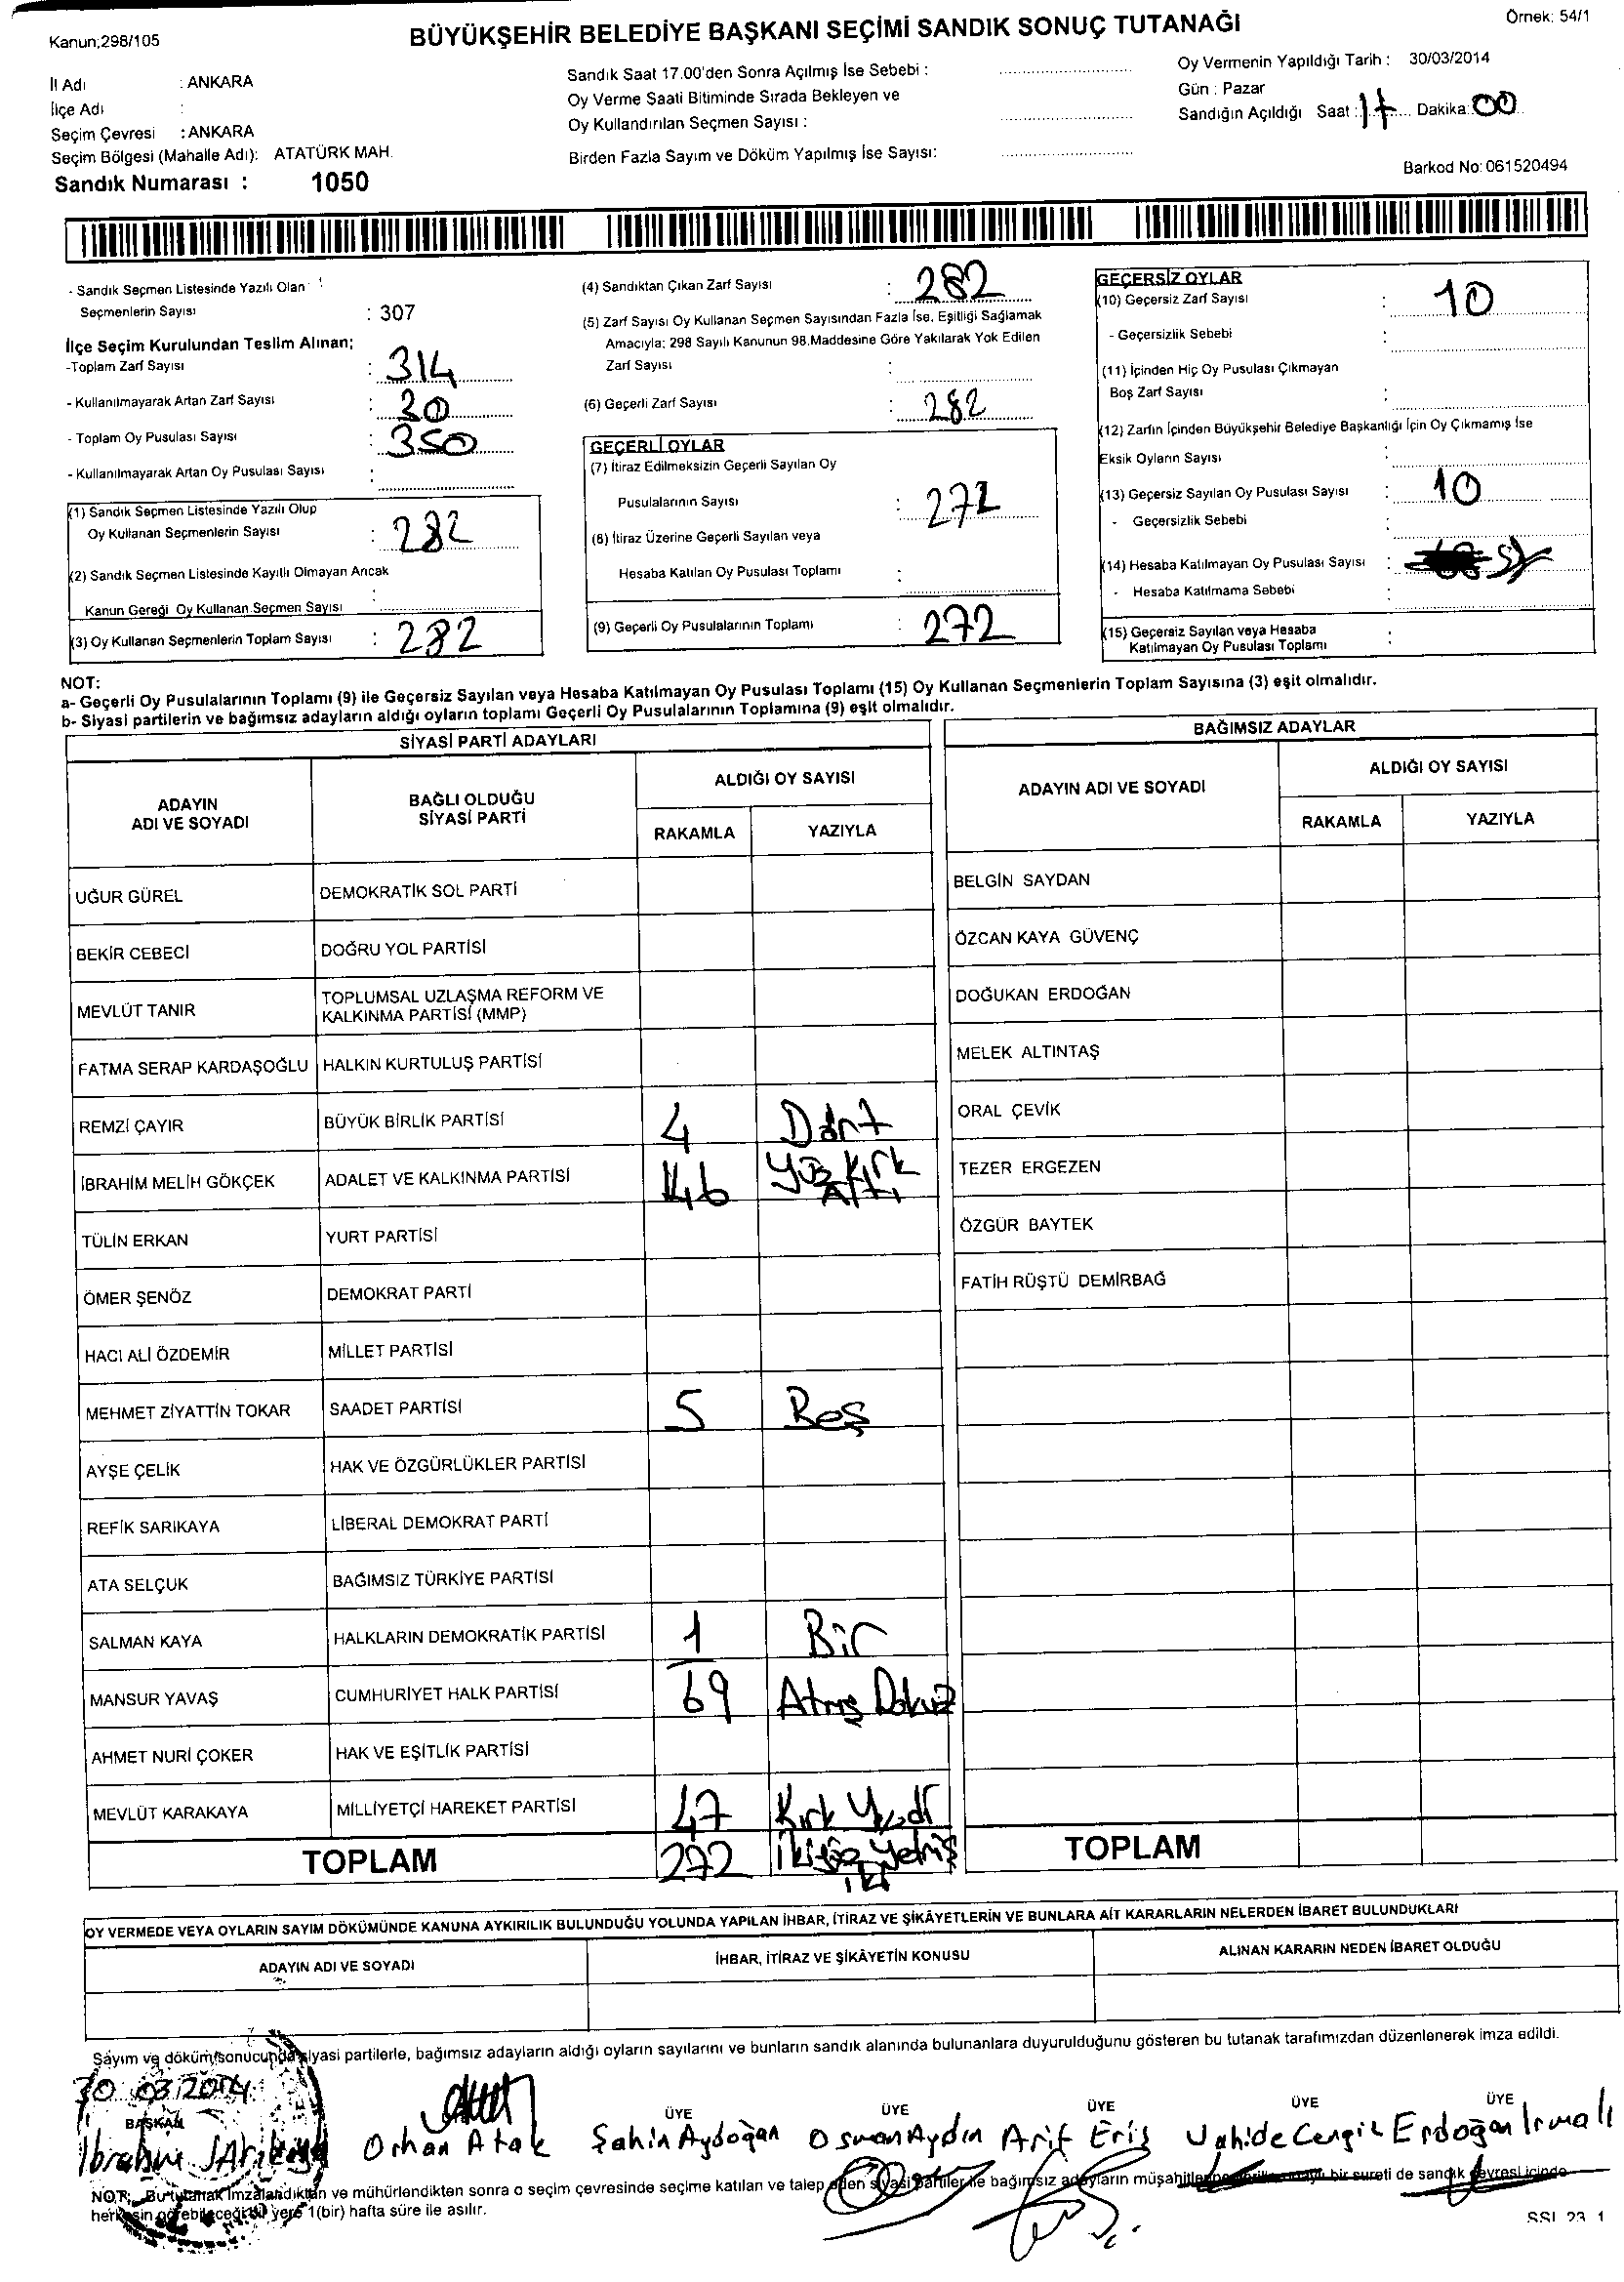 Kanun;298/105
BÜYÜKŞEHİR BELEDİYE BAŞKANI SEÇİMİ SANDIK SONUÇ TUTANAĞI
Örnek: 54/1
İl Adı : ANKARA
İlçe Adı :
Seçim Çevresi : ANKARA
Seçim Bölgesi (Mahalle Adı): ATATÜRK MAH.
Sandık Numarası : 1050
Sandık Saat 17.00'den Sonra Açılmış İse Sebebi :
Oy Verme Saati Bitiminde Sırada Bekleyen ve
Oy Kullandırılan Seçmen Sayısı :
Birden Fazla Sayım ve Döküm Yapılmış İse Sayısı:
Oy Vermenin Yapıldığı Tarih : 30/03/2014
Gün : Pazar
Sandığın Açıldığı Saat : 17 Dakika: 00
Barkod No: 061520494
- Sandık Seçmen Listesinde Yazılı Olan
Seçmenlerin Sayısı : 307
İlçe Seçim Kurulundan Teslim Alınan;
-Toplam Zarf Sayısı : 314
- Kullanılmayarak Artan Zarf Sayısı : 30
- Toplam Oy Pusulası Sayısı : 350
- Kullanılmayarak Artan Oy Pusulası Sayısı :
(1) Sandık Seçmen Listesinde Yazılı Olup
Oy Kullanan Seçmenlerin Sayısı : 282
(2) Sandık Seçmen Listesinde Kayıtlı Olmayan Ancak
Kanun Gereği Oy Kullanan Seçmen Sayısı :
(3) Oy Kullanan Seçmenlerin Toplam Sayısı : 282
(4) Sandıktan Çıkan Zarf Sayısı : 282
(5) Zarf Sayısı Oy Kullanan Seçmen Sayısından Fazla İse, Eşitliği Sağlamak
Amacıyla; 298 Sayılı Kanunun 98.Maddesine Göre Yakılarak Yok Edilen
Zarf Sayısı :
(6) Geçerli Zarf Sayısı : 282
GEÇERLİ OYLAR
(7) İtiraz Edilmeksizin Geçerli Sayılan Oy
Pusulalarının Sayısı : 272
(8) İtiraz Üzerine Geçerli Sayılan veya
Hesaba Katılan Oy Pusulası Toplamı :
(9) Geçerli Oy Pusulalarının Toplamı : 272
GEÇERSİZ OYLAR
(10) Geçersiz Zarf Sayısı : 10
- Geçersizlik Sebebi :
(11) İçinden Hiç Oy Pusulası Çıkmayan
Boş Zarf Sayısı :
(12) Zarfın İçinden Büyükşehir Belediye Başkanlığı İçin Oy Çıkmamış İse
Eksik Oyların Sayısı :
(13) Geçersiz Sayılan Oy Pusulası Sayısı : 10
- Geçersizlik Sebebi :
(14) Hesaba Katılmayan Oy Pusulası Sayısı :
- Hesaba Katılmama Sebebi :
(15) Geçersiz Sayılan veya Hesaba
Katılmayan Oy Pusulası Toplamı :
NOT:
a- Geçerli Oy Pusulalarının Toplamı (9) ile Geçersiz Sayılan veya Hesaba Katılmayan Oy Pusulası Toplamı (15) Oy Kullanan Seçmenlerin Toplam Sayısına (3) eşit olmalıdır.
b- Siyasi partilerin ve bağımsız adayların aldığı oyların toplamı Geçerli Oy Pusulalarının Toplamına (9) eşit olmalıdır.
SİYASİ PARTİ ADAYLARI
ADAYIN ADI VE SOYADI BAĞLI OLDUĞU SİYASİ PARTİ ALDIĞI OY SAYISI
RAKAMLA YAZIYLA
UĞUR GÜREL DEMOKRATİK SOL PARTİ
BEKİR CEBECİ DOĞRU YOL PARTİSİ
MEVLÜT TANIR TOPLUMSAL UZLAŞMA REFORM VE KALKINMA PARTİSİ (MMP)
FATMA SERAP KARDAŞOĞLU HALKIN KURTULUŞ PARTİSİ
REMZİ ÇAYIR BÜYÜK BİRLİK PARTİSİ 4 Dört
İBRAHİM MELİH GÖKÇEK ADALET VE KALKINMA PARTİSİ 146 Yüz Kırk Altı
TÜLİN ERKAN YURT PARTİSİ
ÖMER ŞENÖZ DEMOKRAT PARTİ
HACI ALİ ÖZDEMİR MİLLET PARTİSİ
MEHMET ZİYATTİN TOKAR SAADET PARTİSİ 5 Beş
AYŞE ÇELİK HAK VE ÖZGÜRLÜKLER PARTİSİ
REFİK SARIKAYA LİBERAL DEMOKRAT PARTİ
ATA SELÇUK BAĞIMSIZ TÜRKİYE PARTİSİ
SALMAN KAYA HALKLARIN DEMOKRATİK PARTİSİ 1 Bir
MANSUR YAVAŞ CUMHURİYET HALK PARTİSİ 69 Atmış Dokuz
AHMET NURİ ÇOKER HAK VE EŞİTLİK PARTİSİ
MEVLÜT KARAKAYA MİLLİYETÇİ HAREKET PARTİSİ 47 Kırk Yedi
TOPLAM 272 İkiyüz Yetmiş iki
BAĞIMSIZ ADAYLAR
ADAYIN ADI VE SOYADI ALDIĞI OY SAYISI
RAKAMLA YAZIYLA
BELGİN SAYDAN
ÖZCAN KAYA GÜVENÇ
DOĞUKAN ERDOĞAN
MELEK ALTINTAŞ
ORAL ÇEVİK
TEZER ERGEZEN
ÖZGÜR BAYTEK
FATİH RÜŞTÜ DEMİRBAĞ
TOPLAM
OY VERMEDE VEYA OYLARIN SAYIM DÖKÜMÜNDE KANUNA AYKIRILIK BULUNDUĞU YOLUNDA YAPILAN İHBAR, İTİRAZ VE ŞİKÂYETLERİN VE BUNLARA AİT KARARLARIN NELERDEN İBARET BULUNDUKLARI
ADAYIN ADI VE SOYADI İHBAR, İTİRAZ VE ŞİKÂYETİN KONUSU ALINAN KARARIN NEDEN İBARET OLDUĞU
Sayım ve döküm sonucunda siyasi partilerle, bağımsız adayların aldığı oyların sayılarını ve bunların sandık alanında bulunanlara duyurulduğunu gösteren bu tutanak tarafımızdan düzenlenerek imza edildi.
30 03 2014
BAŞKAN ÜYE ÜYE ÜYE ÜYE ÜYE
İbrahim Orhan Atak Şahin Aydoğan Osman Aydın Arif Eriş Vahide Cengiz Erdoğan Irmalı
NOT: Bu tutanak imzalandıktan ve mühürlendikten sonra o seçim çevresinde seçime katılan ve talep eden siyasi partiler ile bağımsız adayların müşahitlerine bir sureti de sandık çevresi içinde
herkesin görebileceği bir yere 1(bir) hafta süre ile asılır.
SSI 23 1